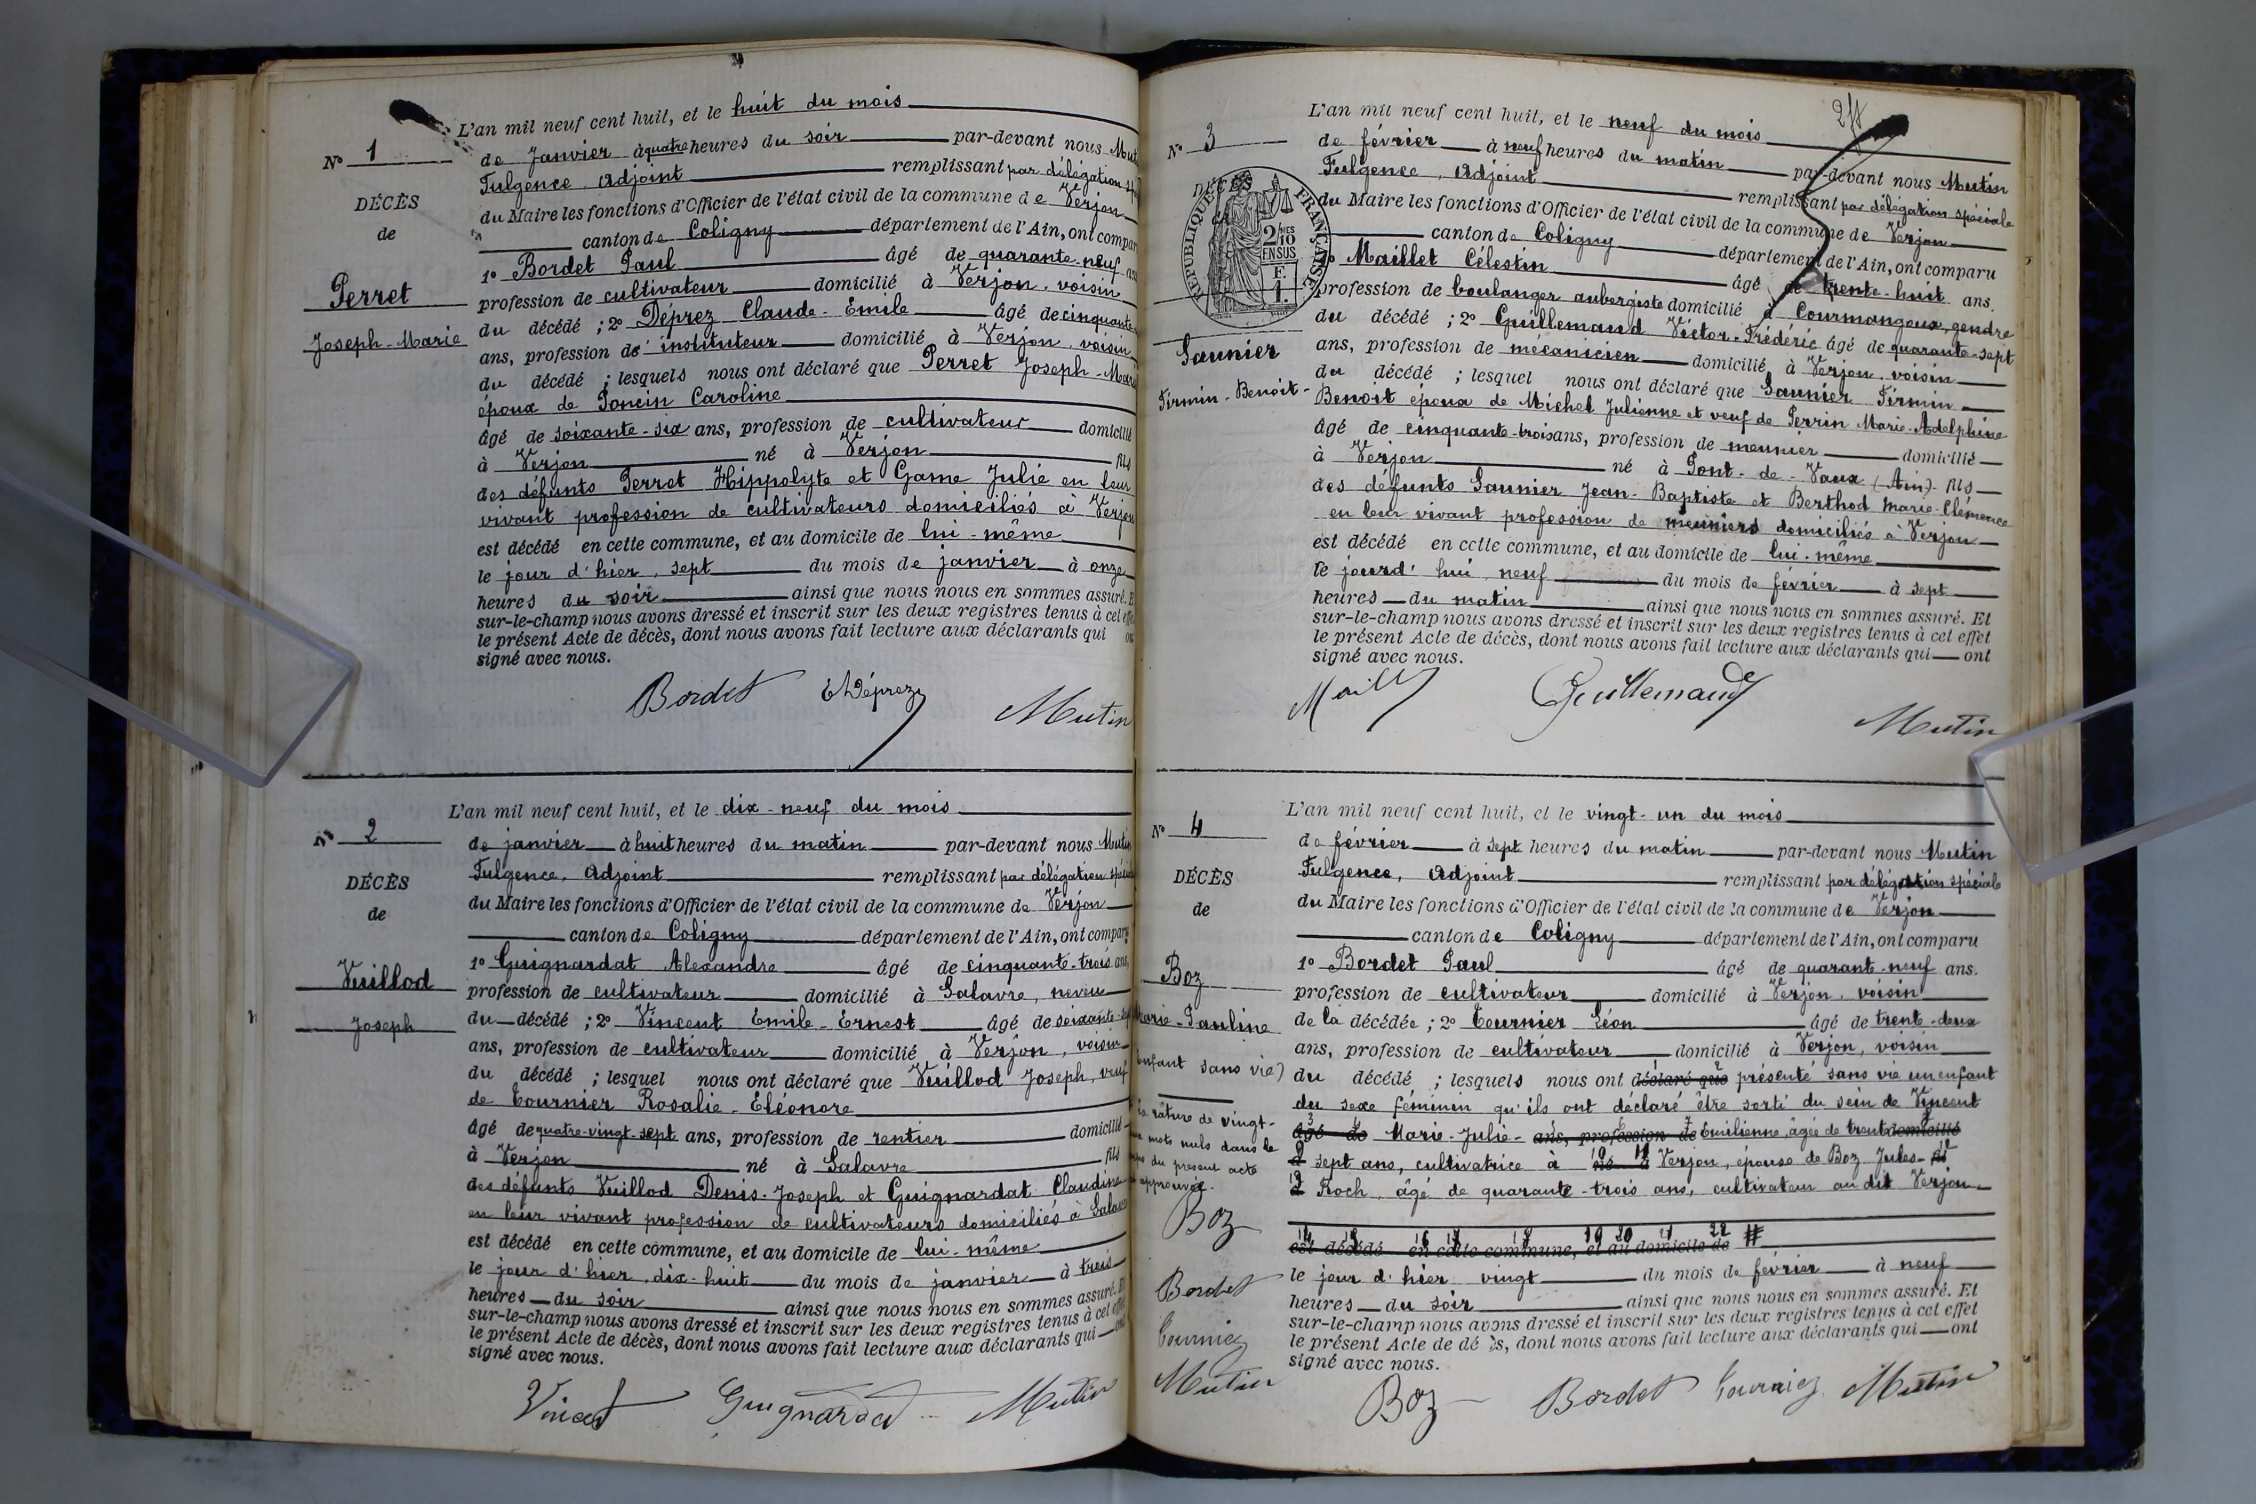 L'an mil neuf cent huit, et le huit du mois
N° 1
de Janvier à quatre heures du soir par-devant nous Mut
Fulgence, Adjoint remplissant par délégation spé
DÉCÈS
du Maire les fonctions d'Officier de l'état civil de la commune de Verjon
de
canton de Coligny département de l'Ain, ont compar
1° Bordet Paul âgé de quarante-neuf ans
Perret
profession de cultivateur domicilié à Verjon, voisin
Joseph-Marie
du décédé ; 2° Déprez Claude-Emile âgé de cinquante
ans, profession d'instituteur domicilié à Verjon, voisin
du décédé ; lesquels nous ont déclaré que Perret Joseph-Marie
époux de Poncin Caroline
âgé de soixante-six ans, profession de cultivateur domicilié
à Verjon né à Verjon fils
des défunts Perret Hippolyte et Game Julie en leur
vivant profession de cultivateurs domiciliés à Verjon
est décédé en cette commune, et au domicile de lui-même
le jour d'hier, sept du mois de janvier à onze
heures du soir ainsi que nous nous en sommes assuré. E
sur-le-champ nous avons dressé et inscrit sur les deux registres tenus à cet effet
le présent Acte de décès, dont nous avons fait lecture aux déclarants qui on
signé avec nous.
Bordet EDéprez Mutin
L'an mil neuf cent huit, et le dix-neuf du mois
N° 2
de janvier à huit heures du matin par-devant nous Mutin
Fulgence, Adjoint remplissant par délégation spécia
DÉCÈS
du Maire les fonctions d'Officier de l'état civil de la commune de Verjon
de
canton de Coligny département de l'Ain, ont comparu
1° Guignardat Alexandre âgé de cinquante-trois ans,
Vuillod
profession de cultivateur domicilié à Salavre, neveu
Joseph
du décédé ; 2° Vincent Emile-Ernest âgé de soixante-
ans, profession de cultivateur domicilié à Verjon, voisin
du décédé ; lesquel nous ont déclaré que Vuillod Joseph, veuf
de Tournier Rosalie-Eléonore
âgé de quatre-vingt-sept ans, profession de rentier domicilié
à Verjon né à Salavre fils
des défunts Vuillod Denis-Joseph et Guignardat Claudine
en leur vivant profession de cultivateurs domiciliés à Salavre
est décédé en cette commune, et au domicile de lui-même
le jour d'hier, dix-huit du mois de janvier à trois
heures du soir ainsi que nous nous en sommes assuré. E
sur-le-champ nous avons dressé et inscrit sur les deux registres tenus à cet effet
le présent Acte de décès, dont nous avons fait lecture aux déclarants qui ont
signé avec nous.
Vincent Guignardat Mutin
L'an mil neuf cent huit, et le neuf du mois
N° 3
de février à neuf heures du matin par-devant nous Mutin
Fulgence, Adjoint remplissant par délégation spéciale
DÉCÈS
RÉPUBLIQUE FRANÇAISE
2/10 EN SUS
F. 1.
du Maire les fonctions d'Officier de l'état civil de la commune de Verjon
canton de Coligny département de l'Ain, ont comparu
Maillet Célestin âgé de trente-huit ans.
profession de boulanger aubergiste domicilié à Courmangoux, gendre
Saunier
du décédé ; 2° Guillemaud Victor-Frédéric âgé de quarante-sept
ans, profession de mécanicien domicilié à Verjon, voisin
Firmin-Benoit
du décédé ; lesquel nous ont déclaré que Saunier Firmin
Benoit époux de Michel Julienne et veuf de Perrin Marie-Adelphine
âgé de cinquante-trois ans, profession de meunier domicilié
à Verjon né à Pont-de-Vaux (Ain) fils
des défunts Saunier Jean-Baptiste et Berthod Marie-Clémence
en leur vivant profession de meuniers domiciliés à Verjon
est décédé en cette commune, et au domicile de lui-même
le jourd'hui, neuf du mois de février à sept
heures du matin ainsi que nous nous en sommes assuré. Et
sur-le-champ nous avons dressé et inscrit sur les deux registres tenus à cet effet
le présent Acte de décès, dont nous avons fait lecture aux déclarants qui ont
signé avec nous.
Guillemaud Mutin
L'an mil neuf cent huit, et le vingt-un du mois
N° 4
de février à sept heures du matin par-devant nous Mutin
Fulgence, Adjoint remplissant par délégation spéciale
DÉCÈS
du Maire les fonctions d'Officier de l'état civil de la commune de Verjon
de
canton de Coligny département de l'Ain, ont comparu
1° Bordet Paul âgé de quarant-neuf ans.
Boz
profession de cultivateur domicilié à Verjon, voisin
Marie-Pauline
de la décédée ; 2° Tournier Léon âgé de trente-deux
ans, profession de cultivateur domicilié à Verjon, voisin
enfant sans vie)
du décédé ; lesquels nous ont déclaré que présenté sans vie un enfant
du sexe féminin qu'ils ont déclaré être sorti du sein de Vincent
âgé de Marie-Julie- ans, profession de Emilienne, âgée de trent domicilié
à sept ans, cultivatrice à né à Verjon, épouse de Boz Jules-
Roch, âgé de quarante-trois ans, cultivateur au dit Verjon
la râture de vingt-
mots nuls dans le
du présent acte
approuvée.
Boz
Bordet
Tournier
Mutin
est décédé en cette commune, et au domicile de #
le jour d'hier vingt du mois de février à neuf
heures du soir ainsi que nous nous en sommes assuré. Et
sur-le-champ nous avons dressé et inscrit sur les deux registres tenus à cet effet
le présent Acte de décès, dont nous avons fait lecture aux déclarants qui ont
signé avec nous.
Boz Bordet Tournier Mutin